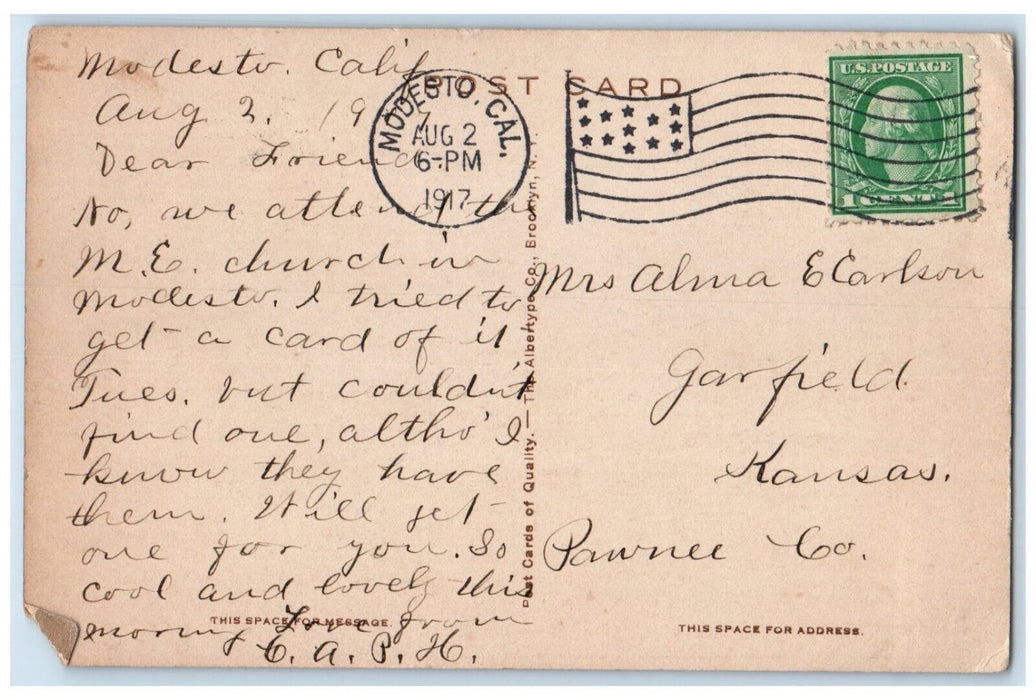 POST CARD
Modesto. Calif
Aug 2. 1917
Dear Friend.
No, we attend the
M.E. church in
Modesto. I tried to
get a card of it
Tues. but couldn't
find one, altho' I
know they have
them. Will get
one for you. So
cool and lovely this
morning Love from
C. A. P. H.
THIS SPACE FOR MESSAGE.
Post Cards of Quality. — The Albertype Co., Brooklyn, N. Y.
MODESTO, CAL.
AUG 2
6-PM
1917
U.S. POSTAGE
1 CENT 1
Mrs Alma E Carlson
Garfield.
Kansas.
Pawnee Co.
THIS SPACE FOR ADDRESS.